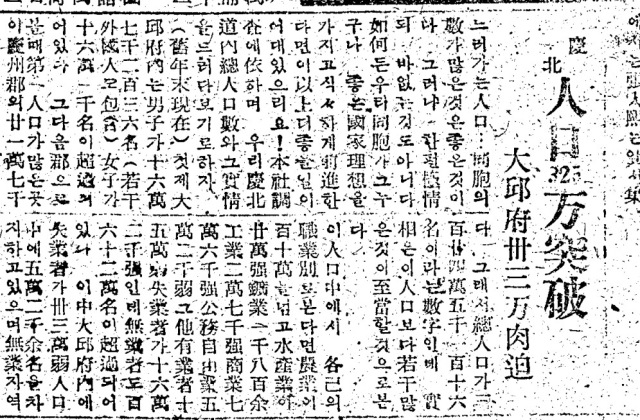 慶北
人口325万突破
大邱府卅三万肉迫
느러가는人口…同胞의
數가많은것은좋은것이
다 그러나 한편
되 바없는것도아니다
如何든우리同胞가그누
구나 좋은國家理想을
가지고씩씩하게前進한
다면이以上더좋은일이
어대있으리오!本社調
査에依하며 우리慶北
道內總人口數와그實情
을드러다보기로하자
(舊年末現在) 첫재大
邱府內는男子가十六萬
七千二百三六名(若干
外國人도包含)女子가
十六萬一千名이超過되
어있다 그다음郡으로
볼때第一人口가많은곳
이慶州郡의廿一萬七千
다 그래서總人口가三
百廿四萬五千一百十六
名이라는數字인데 實
相은이人口보다若干많
은것이至當할것으로본
다
이人口中에서 各己의
職業別로본다면農業이
百十萬을넘고水産業이
廿萬强鑛業一千八百余
工業二萬七千强商業七
萬六千强公務自由業五
萬二千弱그他有業者十
五萬弱失業者가十六萬
二千强인데無業者도百
六十二萬名이超過되어
있다 이中大邱府內에
失業者가卅三萬弱人口
中에五萬二千余名을차
지하고있으며無業자역